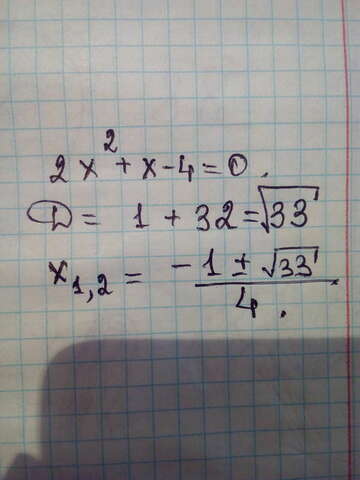 2x² + x - 4 = 0.
D = 1 + 32 = √33
x₁,₂ = (-1 ± √33) / 4.